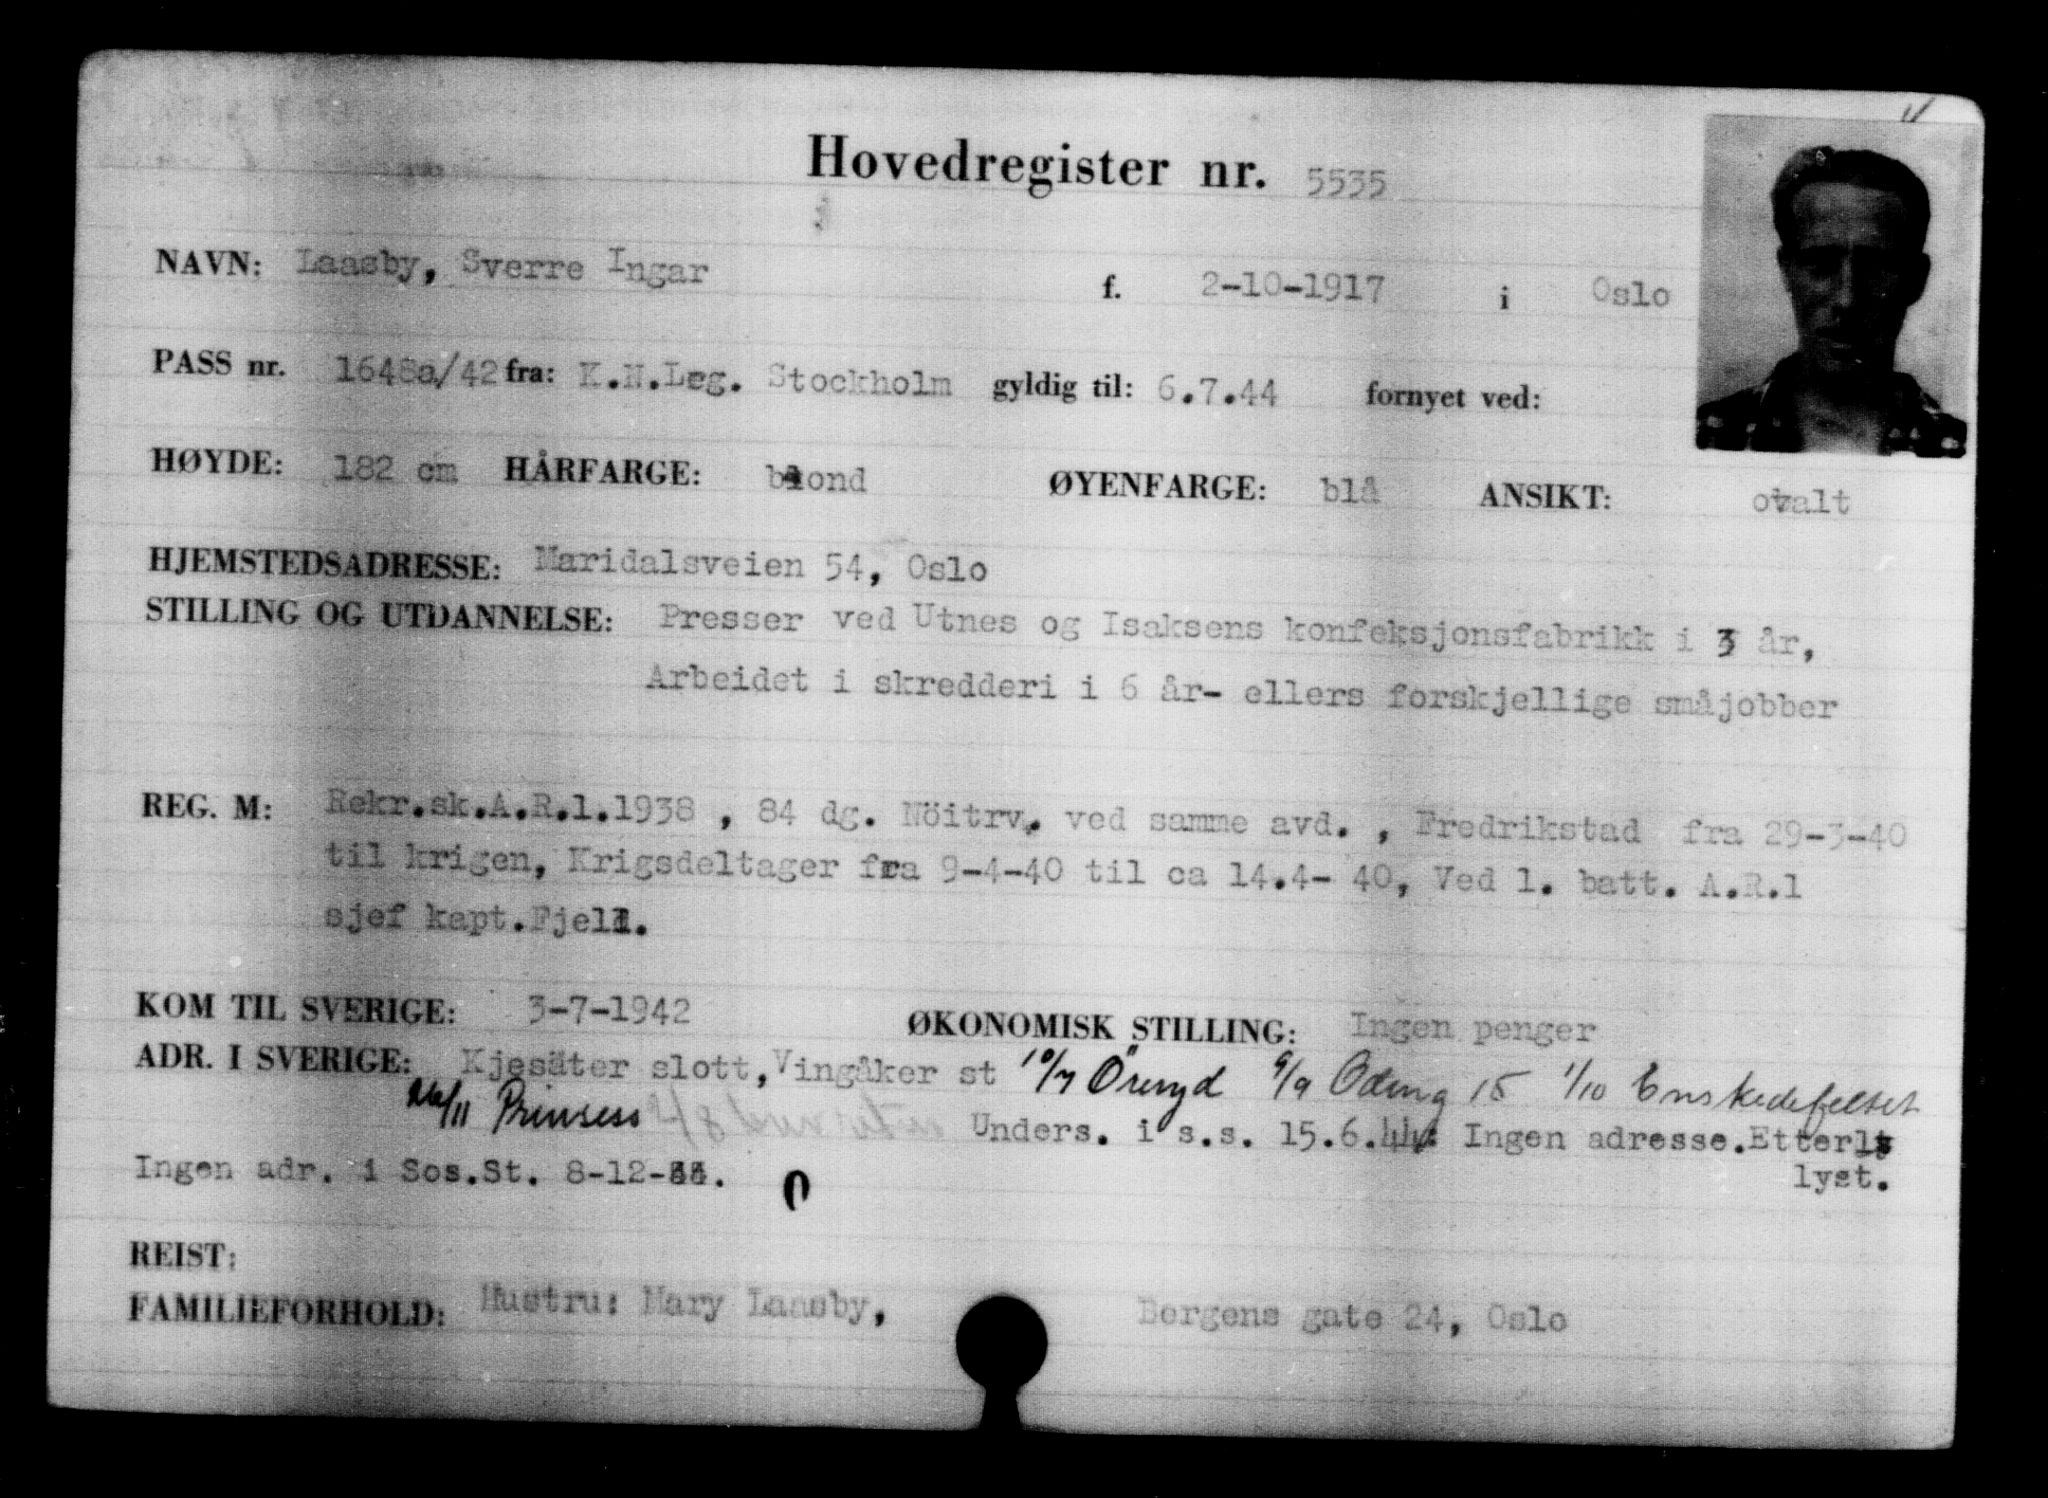 Hovedregister nr. 5535
NAVN: Laasby, Sverre Ingar f. 2-10-1917 i Oslo
PASS nr. 1648a/42 fra: K.N.Leg. Stockholm gyldig til: 6.7.44 fornyet ved:
HØYDE: 182 cm HÅRFARGE: blond ØYENFARGE: blå ANSIKT: ovalt
HJEMSTEDSADRESSE: Maridalsveien 54, Oslo
STILLING OG UTDANNELSE: Presser ved Utnes og Isaksens konfeksjonsfabrikk i 3 år,
Arbeidet i skredderi i 6 år- ellers forskjellige småjobber
REG. M: Rekr.sk.A.R.1.1938 , 84 dg. Nöitrv. ved samme avd. , Fredrikstad fra 29-3-40
til krigen, Krigsdeltager fra 9-4-40 til ca 14.4- 40, Ved 1. batt. A.R.1
sjef kapt.Fjell.
KOM TIL SVERIGE: 3-7-1942 ØKONOMISK STILLING: Ingen penger
ADR. I SVERIGE: Kjesäter slott, Vingåker st 10/7 Öreryd 9/9 Oding 15 1/10 Enskedefeltet
26/11 Prinsess 2/8 Unders. i s.s. 15.6.44: Ingen adresse.Etterly
lyst.
Ingen adr. i Sos.St. 8-12-44.
REIST:
FAMILIEFORHOLD: Hustru: Mary Laasby, Bergens gate 24, Oslo